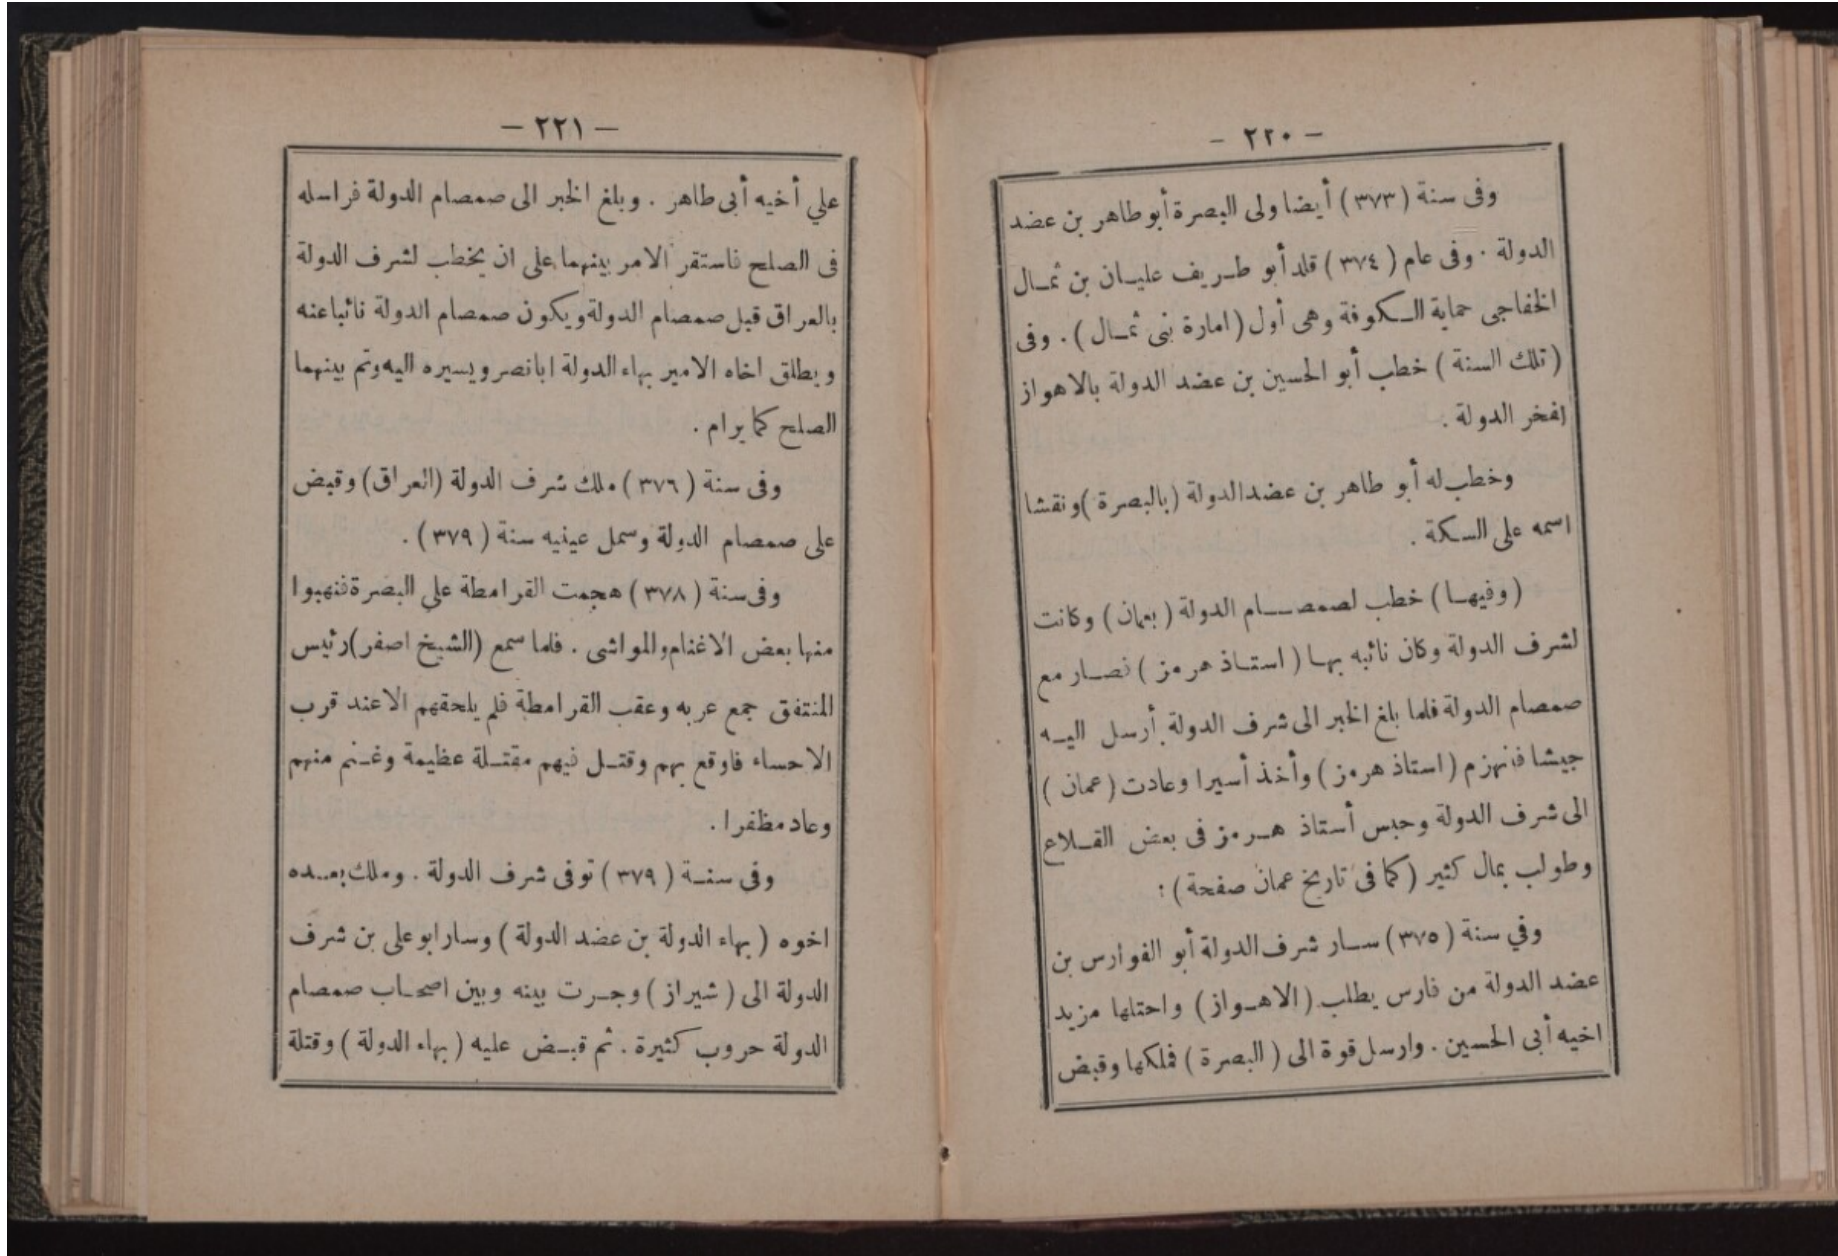 — ٢٢٠ —
وفى سنة (٣٧٣) أيضا ولى البصرة أبو طاهر بن عضد
الدولة . وفى عام (٣٧٤) قلد أبو طريف عليان بن ثمال
الخفاجى حماية الكوفة وهى أول (امارة بنى ثمال) . وفى
(تلك السنة) خطب أبو الحسين بن عضد الدولة بالاهواز
لفخر الدولة .
وخطب له أبو طاهر بن عضد الدولة (بالبصرة) ونقشا
اسمه على السكة .
(وفيها) خطب لصمصام الدولة (بعمان) وكانت
لشرف الدولة وكان نائبه بها (استاذ هرمز) فصار مع
صمصام الدولة فلما بلغ الخبر الى شرف الدولة أرسل اليه
جيشا فانهزم (استاذ هرمز) وأخذ أسيرا وعادت (عمان)
الى شرف الدولة وحبس أستاذ هرمز فى بعض القلاع
وطولب بمال كثير (كما فى تاريخ عمان صفحة) :
وفي سنة (٣٧٥) سار شرف الدولة أبو الفوارس بن
عضد الدولة من فارس يطلب (الاهواز) واحتلها مزيد
اخيه أبى الحسين . وارسل قوة الى (البصرة) فملكها وقبض
— ٢٢١ —
علي أخيه أبى طاهر . وبلغ الخبر الى صمصام الدولة فراسله
فى الصلح فاستقر الامر بينهما على ان يخطب لشرف الدولة
بالعراق قبل صمصام الدولة ويكون صمصام الدولة نائبا عنه
ويطلق اخاه الامير بهاء الدولة ابا نصر ويسيره اليه وتم بينهما
الصلح كما يرام .
وفى سنة (٣٧٦) ملك شرف الدولة (العراق) وقبض
على صمصام الدولة وسمل عينيه سنة (٣٧٩) .
وفى سنة (٣٧٨) هجمت القرامطة علي البصرة فنهبوا
منها بعض الاغنام والمواشى . فلما سمع (الشيخ اصفر) رئيس
المنتفق جمع عربه وعقب القرامطة فلم يلحقهم الا عند قرب
الاحساء فاوقع بهم وقتل فيهم مقتلة عظيمة وغنم منهم
وعاد مظفرا .
وفى سنة (٣٧٩) توفى شرف الدولة . وملك بعده
اخوه (بهاء الدولة بن عضد الدولة) وسار ابو على بن شرف
الدولة الى (شيراز) وجرت بينه وبين اصحاب صمصام
الدولة حروب كثيرة . ثم قبض عليه (بهاء الدولة) وقتلة